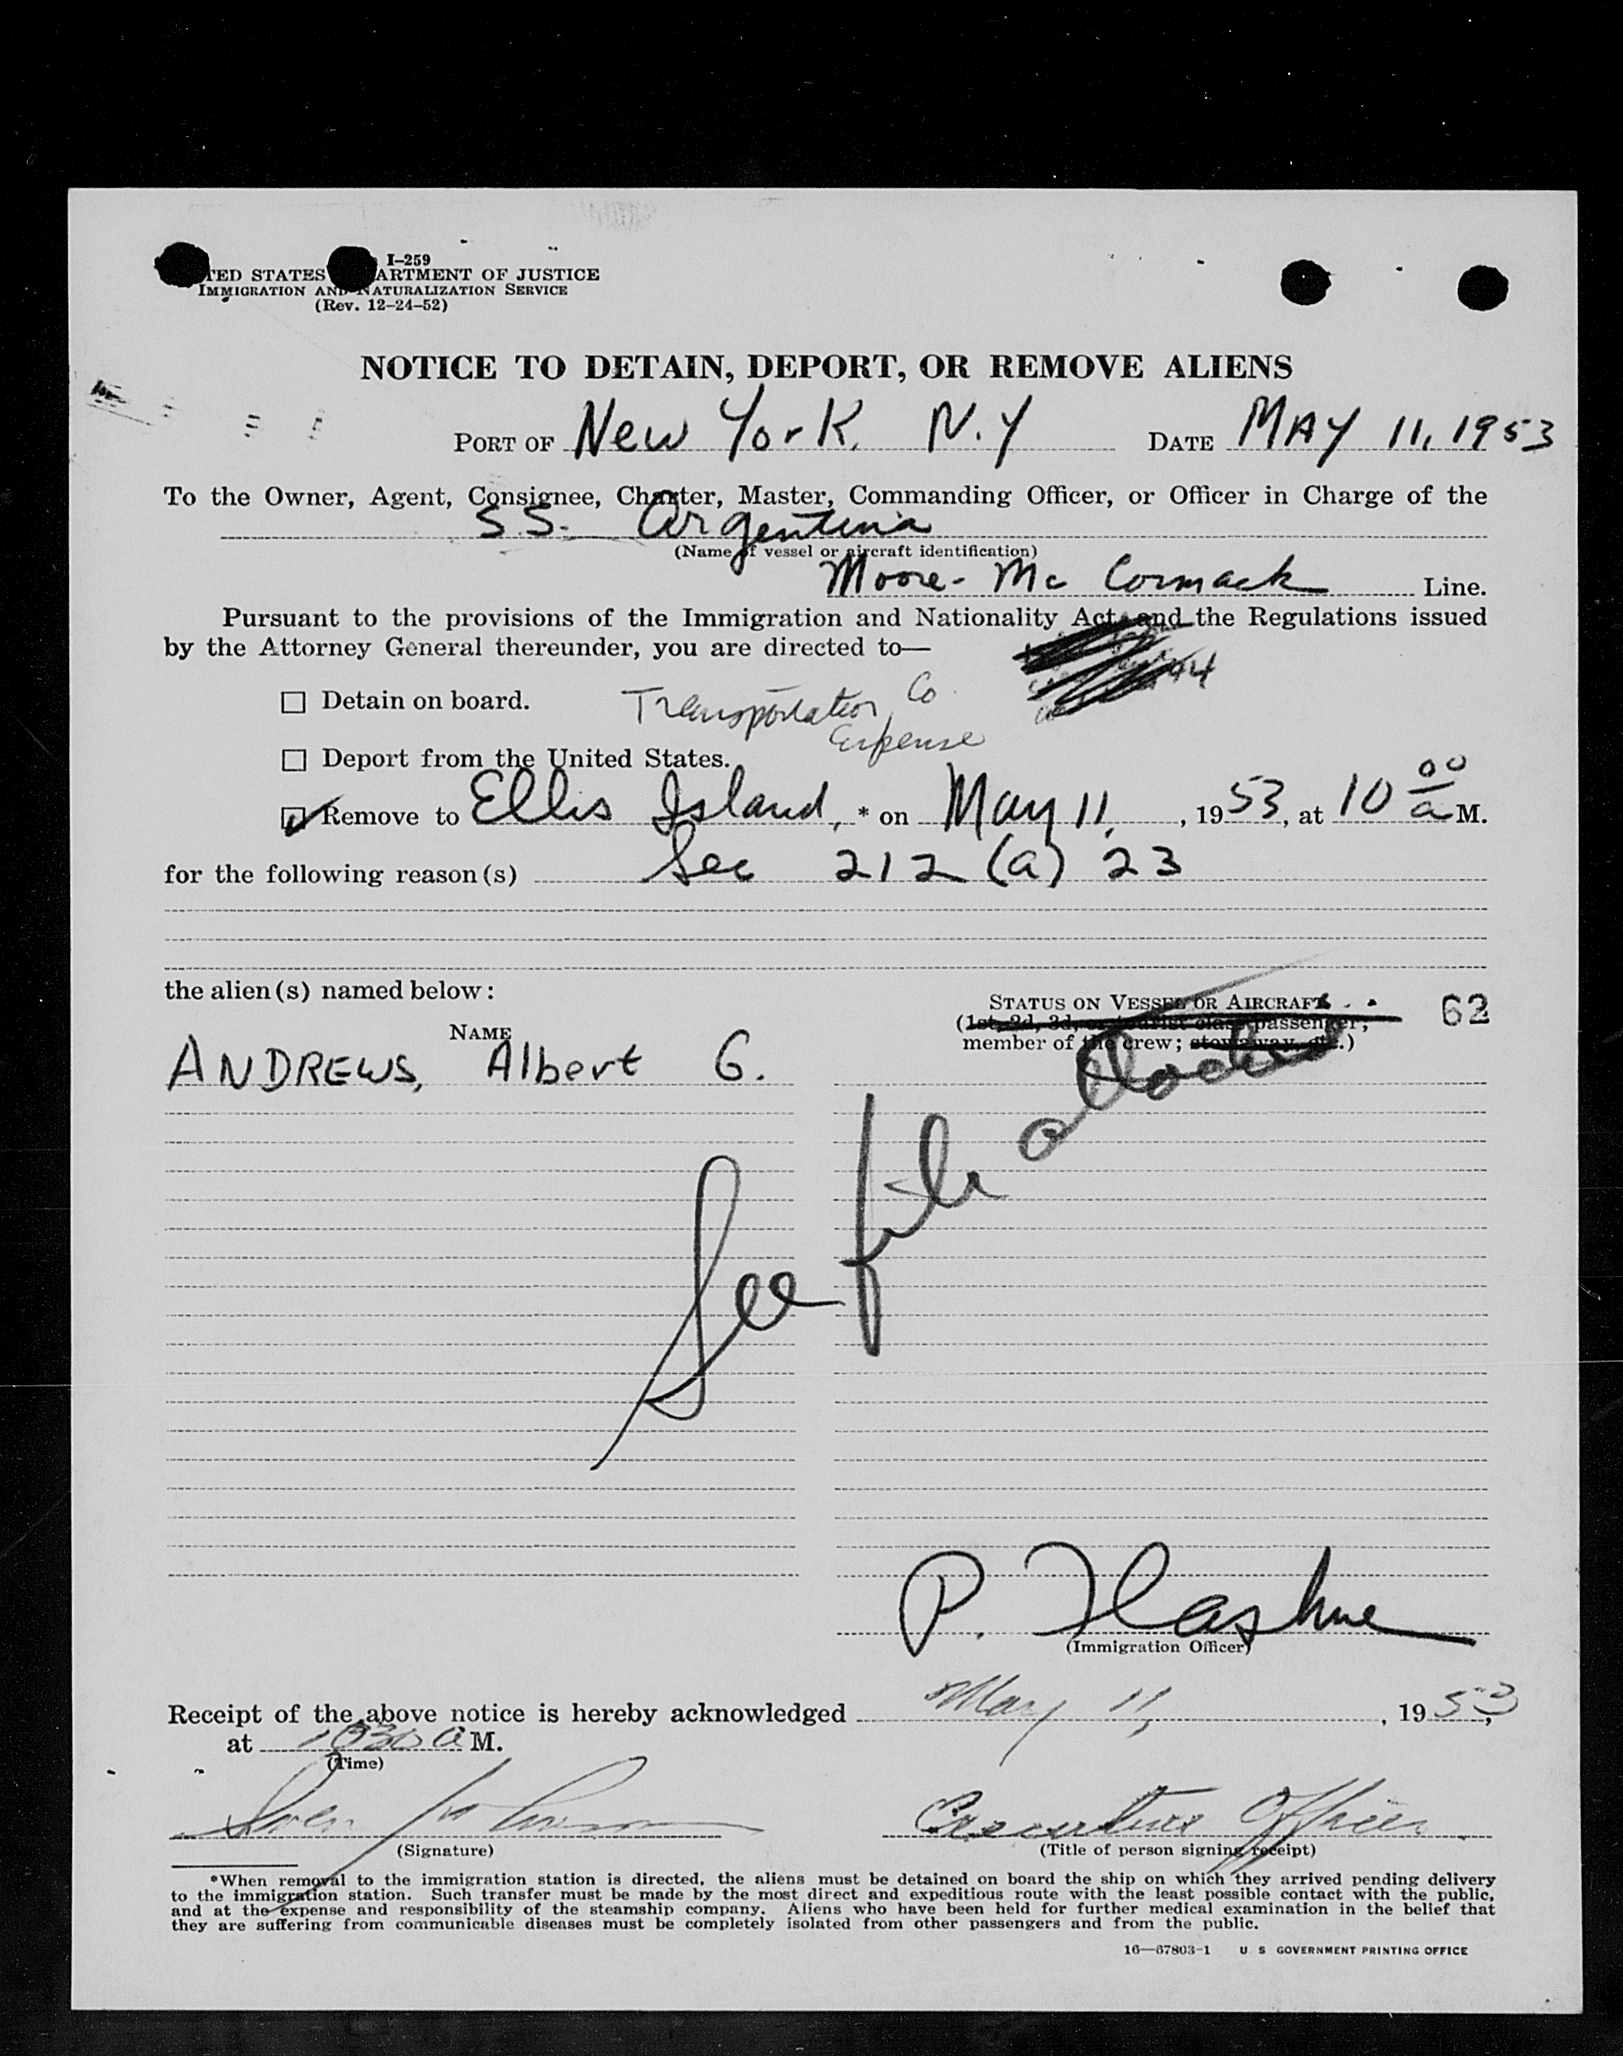 I-259
TED STATES ARTMENT OF JUSTICE
IMMIGRATION AND NATURALIZATION SERVICE
(Rev. 12-24-52)
NOTICE TO DETAIN, DEPORT, OR REMOVE ALIENS
PORT OF New York, N.Y DATE MAY 11, 1953
To the Owner, Agent, Consignee, Charter, Master, Commanding Officer, or Officer in Charge of the
S.S. Argentina
(Name of vessel or aircraft identification)
Moore-McCormack Line.
Pursuant to the provisions of the Immigration and Nationality Act and the Regulations issued
by the Attorney General thereunder, you are directed to—
☐ Detain on board. Transportation Co
Expense
☐ Deport from the United States.
☑ Remove to Ellis Island, * on May 11, , 1953, at 10 00 a M.
for the following reason(s) Sec 212 (a) 23
the alien(s) named below:
STATUS ON VESSEL OR AIRCRAFT 62
(1st, 2d, 3d, or tourist class passenger;
NAME
member of the crew; stowaway, etc.)
ANDREWS, Albert G.
See file attached
P.
(Immigration Officer)
Receipt of the above notice is hereby acknowledged May 11, , 1953,
at 1030 a M.
(Time)
Executive Officer
(Signature) (Title of person signing receipt)
*When removal to the immigration station is directed, the aliens must be detained on board the ship on which they arrived pending delivery
to the immigration station. Such transfer must be made by the most direct and expeditious route with the least possible contact with the public,
and at the expense and responsibility of the steamship company. Aliens who have been held for further medical examination in the belief that
they are suffering from communicable diseases must be completely isolated from other passengers and from the public.
16—67803-1 U S GOVERNMENT PRINTING OFFICE